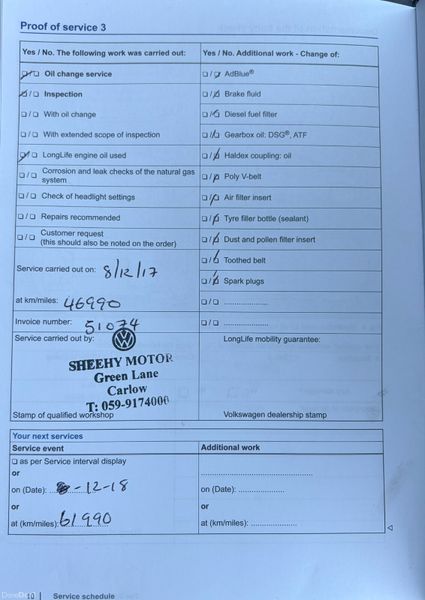 Proof of service 3
Yes / No. The following work was carried out:
Yes / No. Additional work - Change of:
☑/☐ Oil change service
☐/☑ AdBlue®
☑/☐ Inspection
☐/☑ Brake fluid
☐/☐ With oil change
☐/☑ Diesel fuel filter
☐/☐ With extended scope of inspection
☐/☑ Gearbox oil: DSG®, ATF
☑/☐ LongLife engine oil used
☐/☑ Haldex coupling: oil
☐/☐ Corrosion and leak checks of the natural gas
system
☐/☑ Poly V-belt
☐/☐ Check of headlight settings
☐/☑ Air filter insert
☐/☐ Repairs recommended
☐/☑ Tyre filler bottle (sealant)
☐/☐ Customer request
(this should also be noted on the order)
☐/☑ Dust and pollen filter insert
☐/☑ Toothed belt
Service carried out on: 8/12/17
☐/☑ Spark plugs
at km/miles: 46990
☐/☐ ....................
Invoice number: 51074
☐/☐ ....................
Service carried out by:
LongLife mobility guarantee:
SHEEHY MOTOR
Green Lane
Carlow
T: 059-9174000
Stamp of qualified workshop
Volkswagen dealership stamp
Your next services
Service event
Additional work
☐ as per Service interval display
or
on (Date): 8-12-18
on (Date): ....................
or
or
at (km/miles): 61990
at (km/miles): ....................
10 | Service schedule